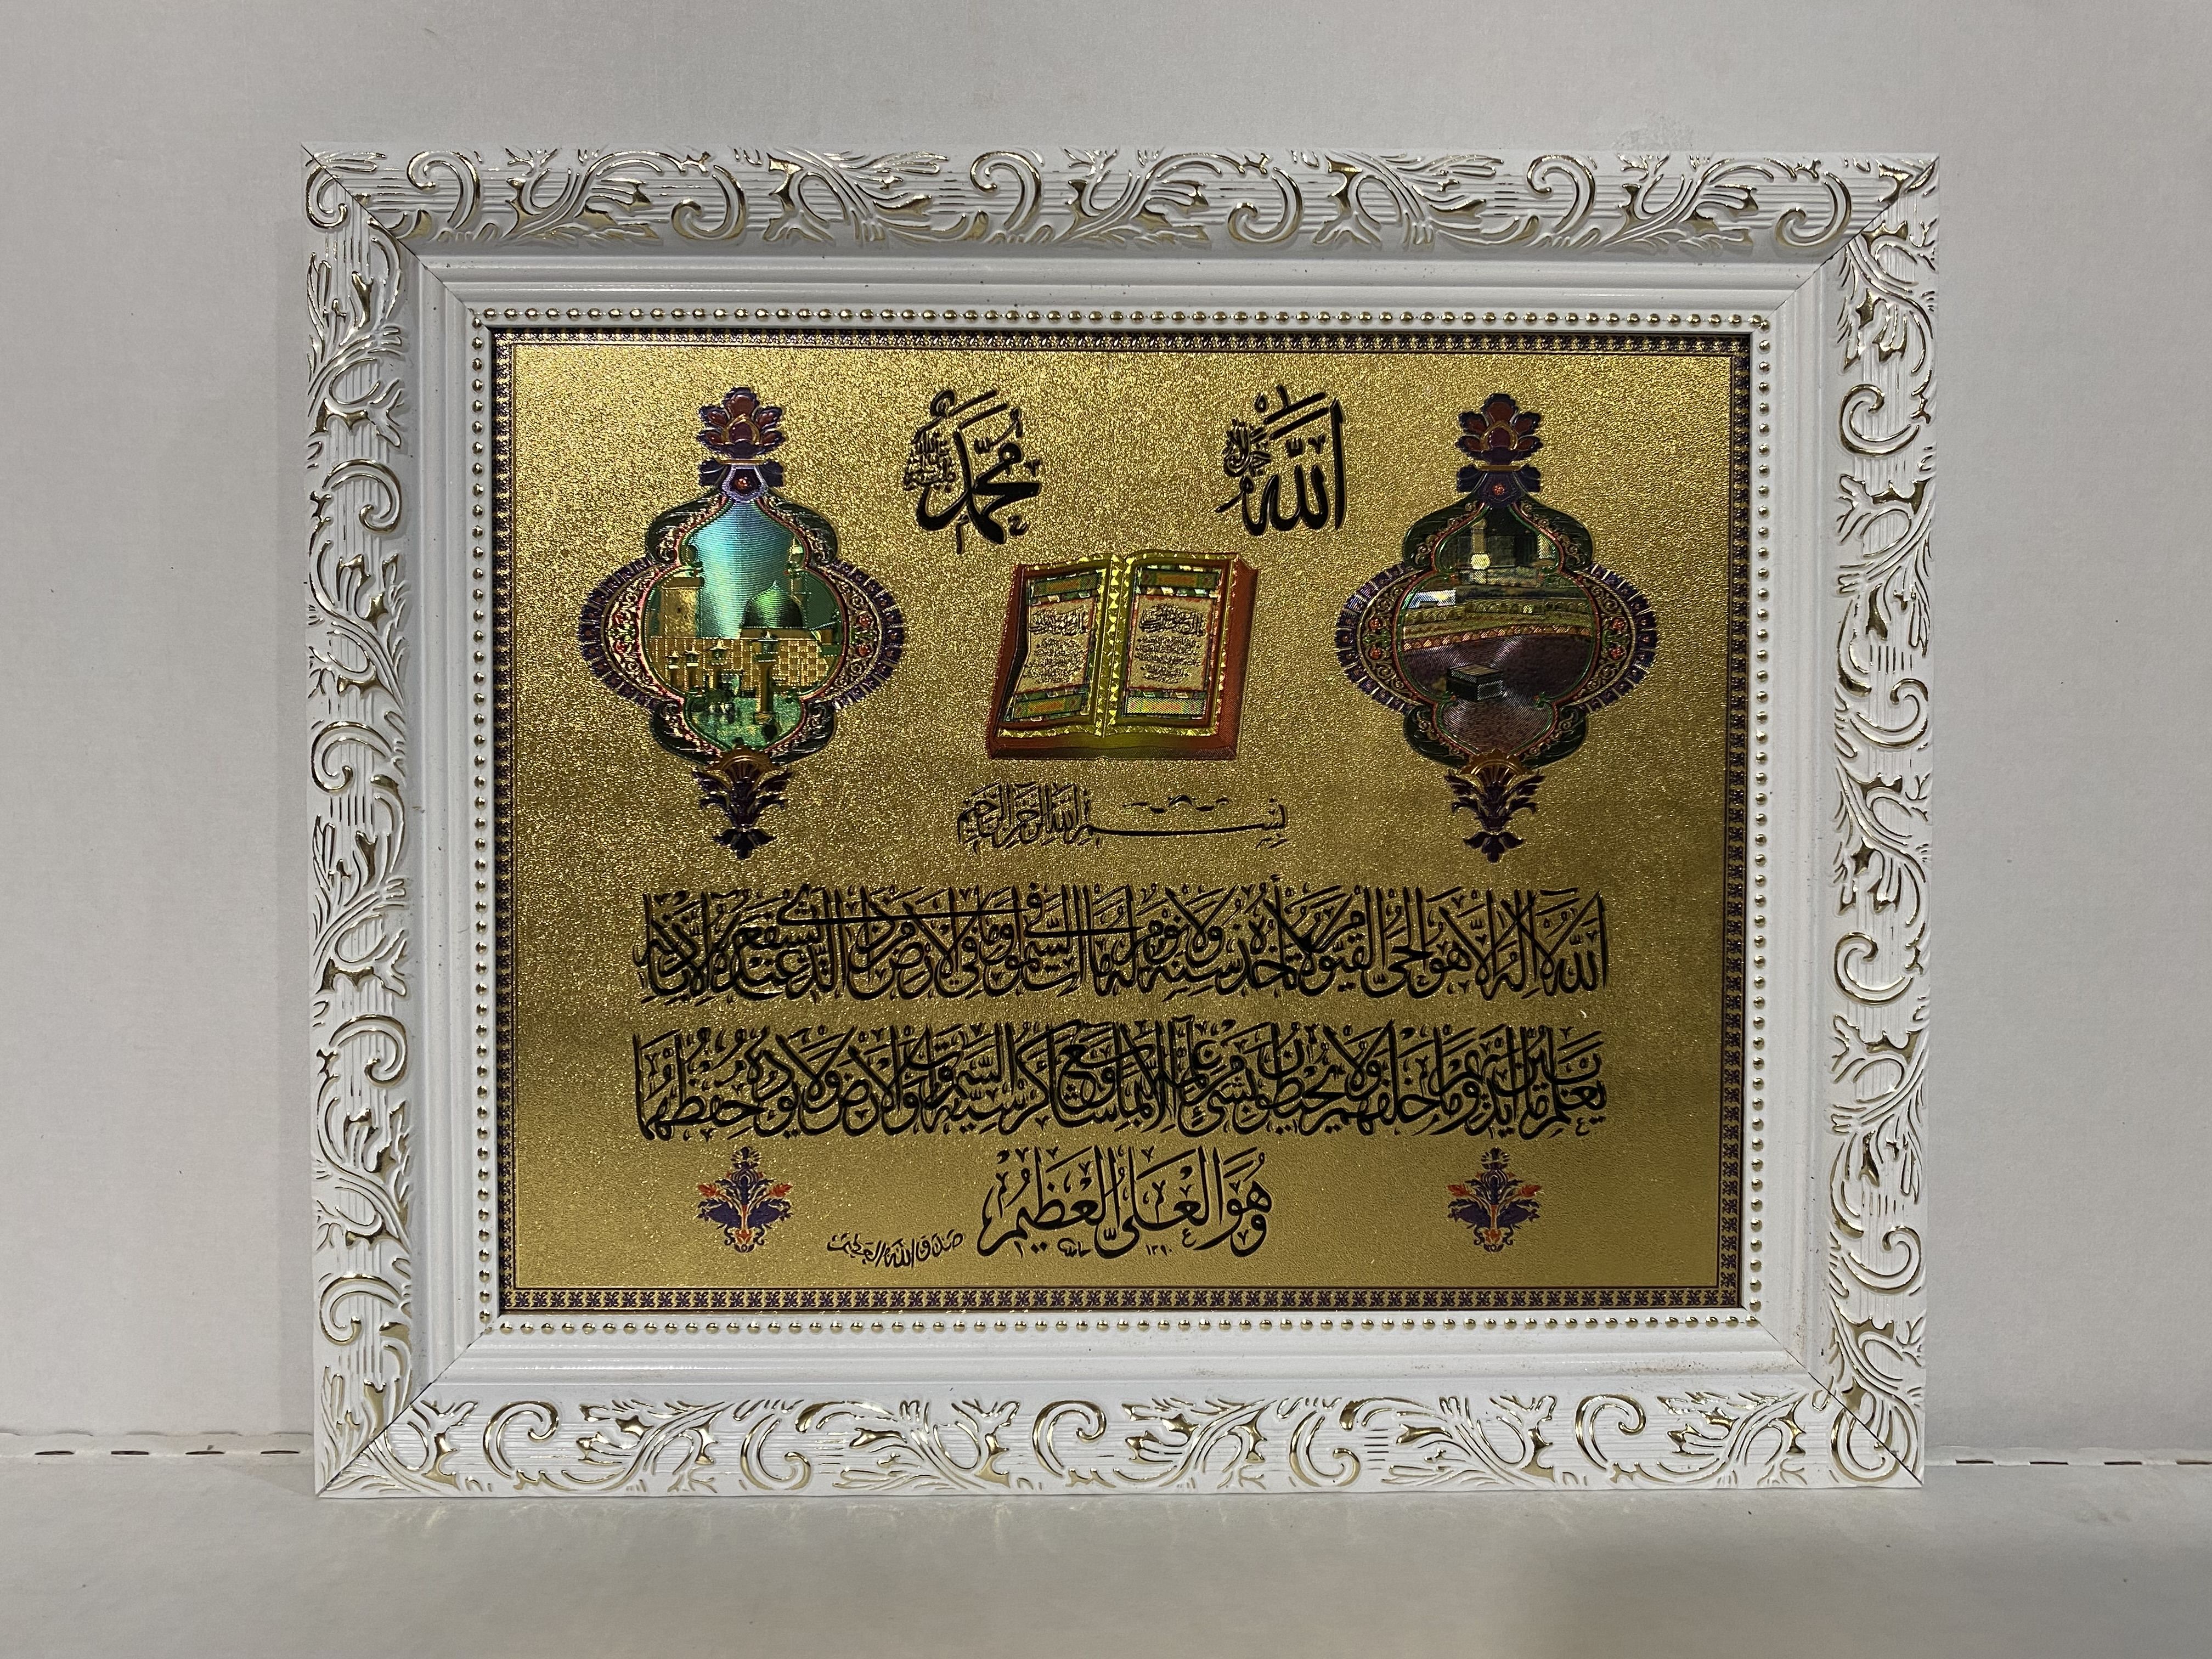 الله جل جلاله
محمد صلى الله عليه وسلم
بسم الله الرحمن الرحيم
الله لا إله إلا هو الحي القيوم لا تأخذه سنة ولا نوم له ما في السموات وما في الأرض من ذا الذي يشفع عنده إلا بإذنه
يعلم ما بين أيديهم وما خلفهم ولا يحيطون بشيء من علمه إلا بما شاء وسع كرسيه السموات والأرض ولا يؤده حفظهما
وهو العلي العظيم
١٣٩٠
صدق الله العظيم